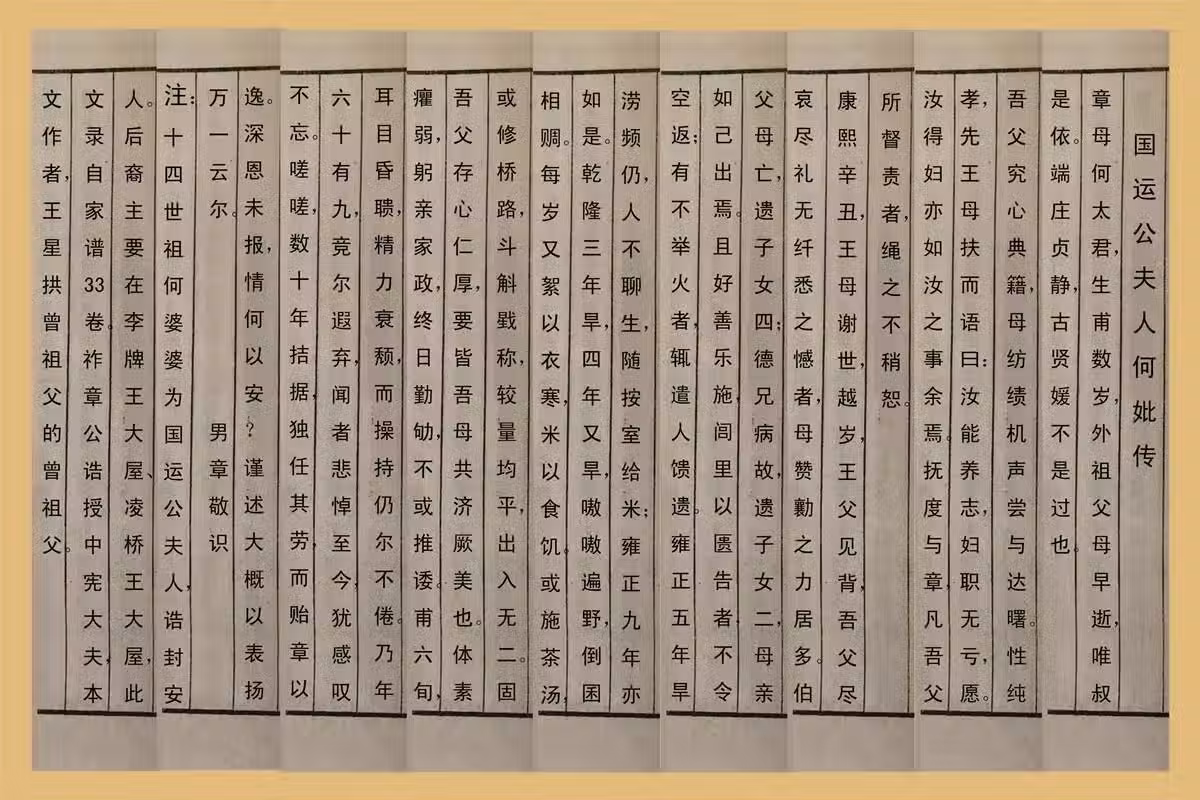 国运公夫人何妣传
章母何太君，生甫数岁，外祖父母早逝，唯叔
是依。端庄贞静，古贤媛不是过也。
吾父究心典籍，母纺绩机声尝与达曙。性纯
孝，先王母扶而语曰：汝能养志，妇职无亏，愿。
汝得妇亦如汝之事余焉。抚度与章，凡吾父
所督责者，绳之不稍恕。
康熙辛丑，王母谢世，越岁，王父见背，吾父尽
哀尽礼无纤悉之憾者，母赞勷之力居多。伯
父母亡，遗子女四；德兄病故，遗子女二，母亲
如己出焉。且好善乐施，闾里以匮告者，不令
空返；有不举火者，辄遣人馈遗。雍正五年旱
涝频仍，人不聊生，随按室给米；雍正九年亦
如是。乾隆三年旱，四年又旱，嗷嗷遍野，倒囷
相赒。每岁又絮以衣寒，米以食饥。或施茶汤，
或修桥路，斗斛戥称，较量均平，出入无二。固
吾父存心仁厚，要皆吾母共济厥美也。体素
癯弱，躬亲家政，终日勤劬，不或推诿。甫六旬，
耳目昏聩，精力衰颓，而操持仍尔不倦。乃年
六十有九，竟尔遐弃，闻者悲悼至今，犹感叹
不忘。嗟嗟，数十年拮据，独任其劳，而贻章以
逸。深恩未报，情何以安？谨述大概以表扬
万一云尔。 男章敬识
注：十四世祖何婆婆为国运公夫人，诰封安
人。后裔主要在李牌王大屋、凌桥王大屋，此
文录自家谱33卷。祚章公诰授中宪大夫，本
文作者，王星拱曾祖父的曾祖父。